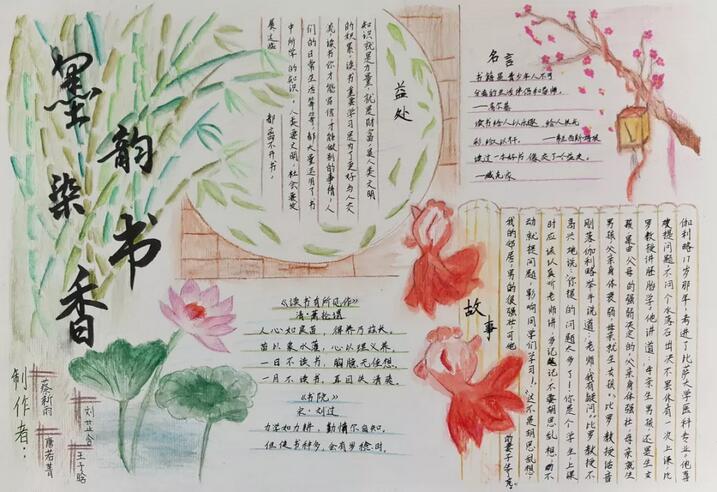 墨韵染书香
益处
知识就是力量,就是财富,是人类文明
的积累,读书重要学习是为了更好与人交
流,读书你才能自信,才能做别的事情,人
们的日常生活等等,都大量运用了书
中所学的知识。人类要文明,社会要发
展进步 都离不开书。
名言
书籍是青少年人不可
分离的生活伴侣和导师。
——高尔基
读书给人以乐趣,给人以光
彩,给人以才干。——弗兰西斯·培根
读过一本好书,像交了个益友。
——臧克家
《读书有所见作》
清·萧抡谓
人心如良苗,得养乃滋长。
苗以泉水灌,心以理义养。
一日不读书,胸臆无佳想。
一月不读书,耳目失清爽。
《书院》
宋·刘过
力学如力耕,勤惰尔自知。
但使书种多,会有岁稔时。
故事
伽利略17岁那年,考进了比萨大学医科专业。他喜
欢提问题,不问个水落石出决不罢休。有一次上课,比
罗教授讲胚胎学。他讲道:"母亲生男孩,还是生女
孩,是由父母的强弱决定的。父亲身体强壮,母亲就生
男孩;父亲身体衰弱,母亲就生女孩。"比罗教授话音
刚落,伽利略举手说道:"老师,我有疑问。"比罗教授不
高兴地说:"你提的问题太多了!你是个学生,上课
时应该认真听老师讲,多记笔记,不要胡思乱想,动不
动就提问题,影响同学们学习!""这不是胡思乱想,
我的邻居,男的很强壮,可他
的妻子
制作者:
蔡新雨
唐若菁
王子晗